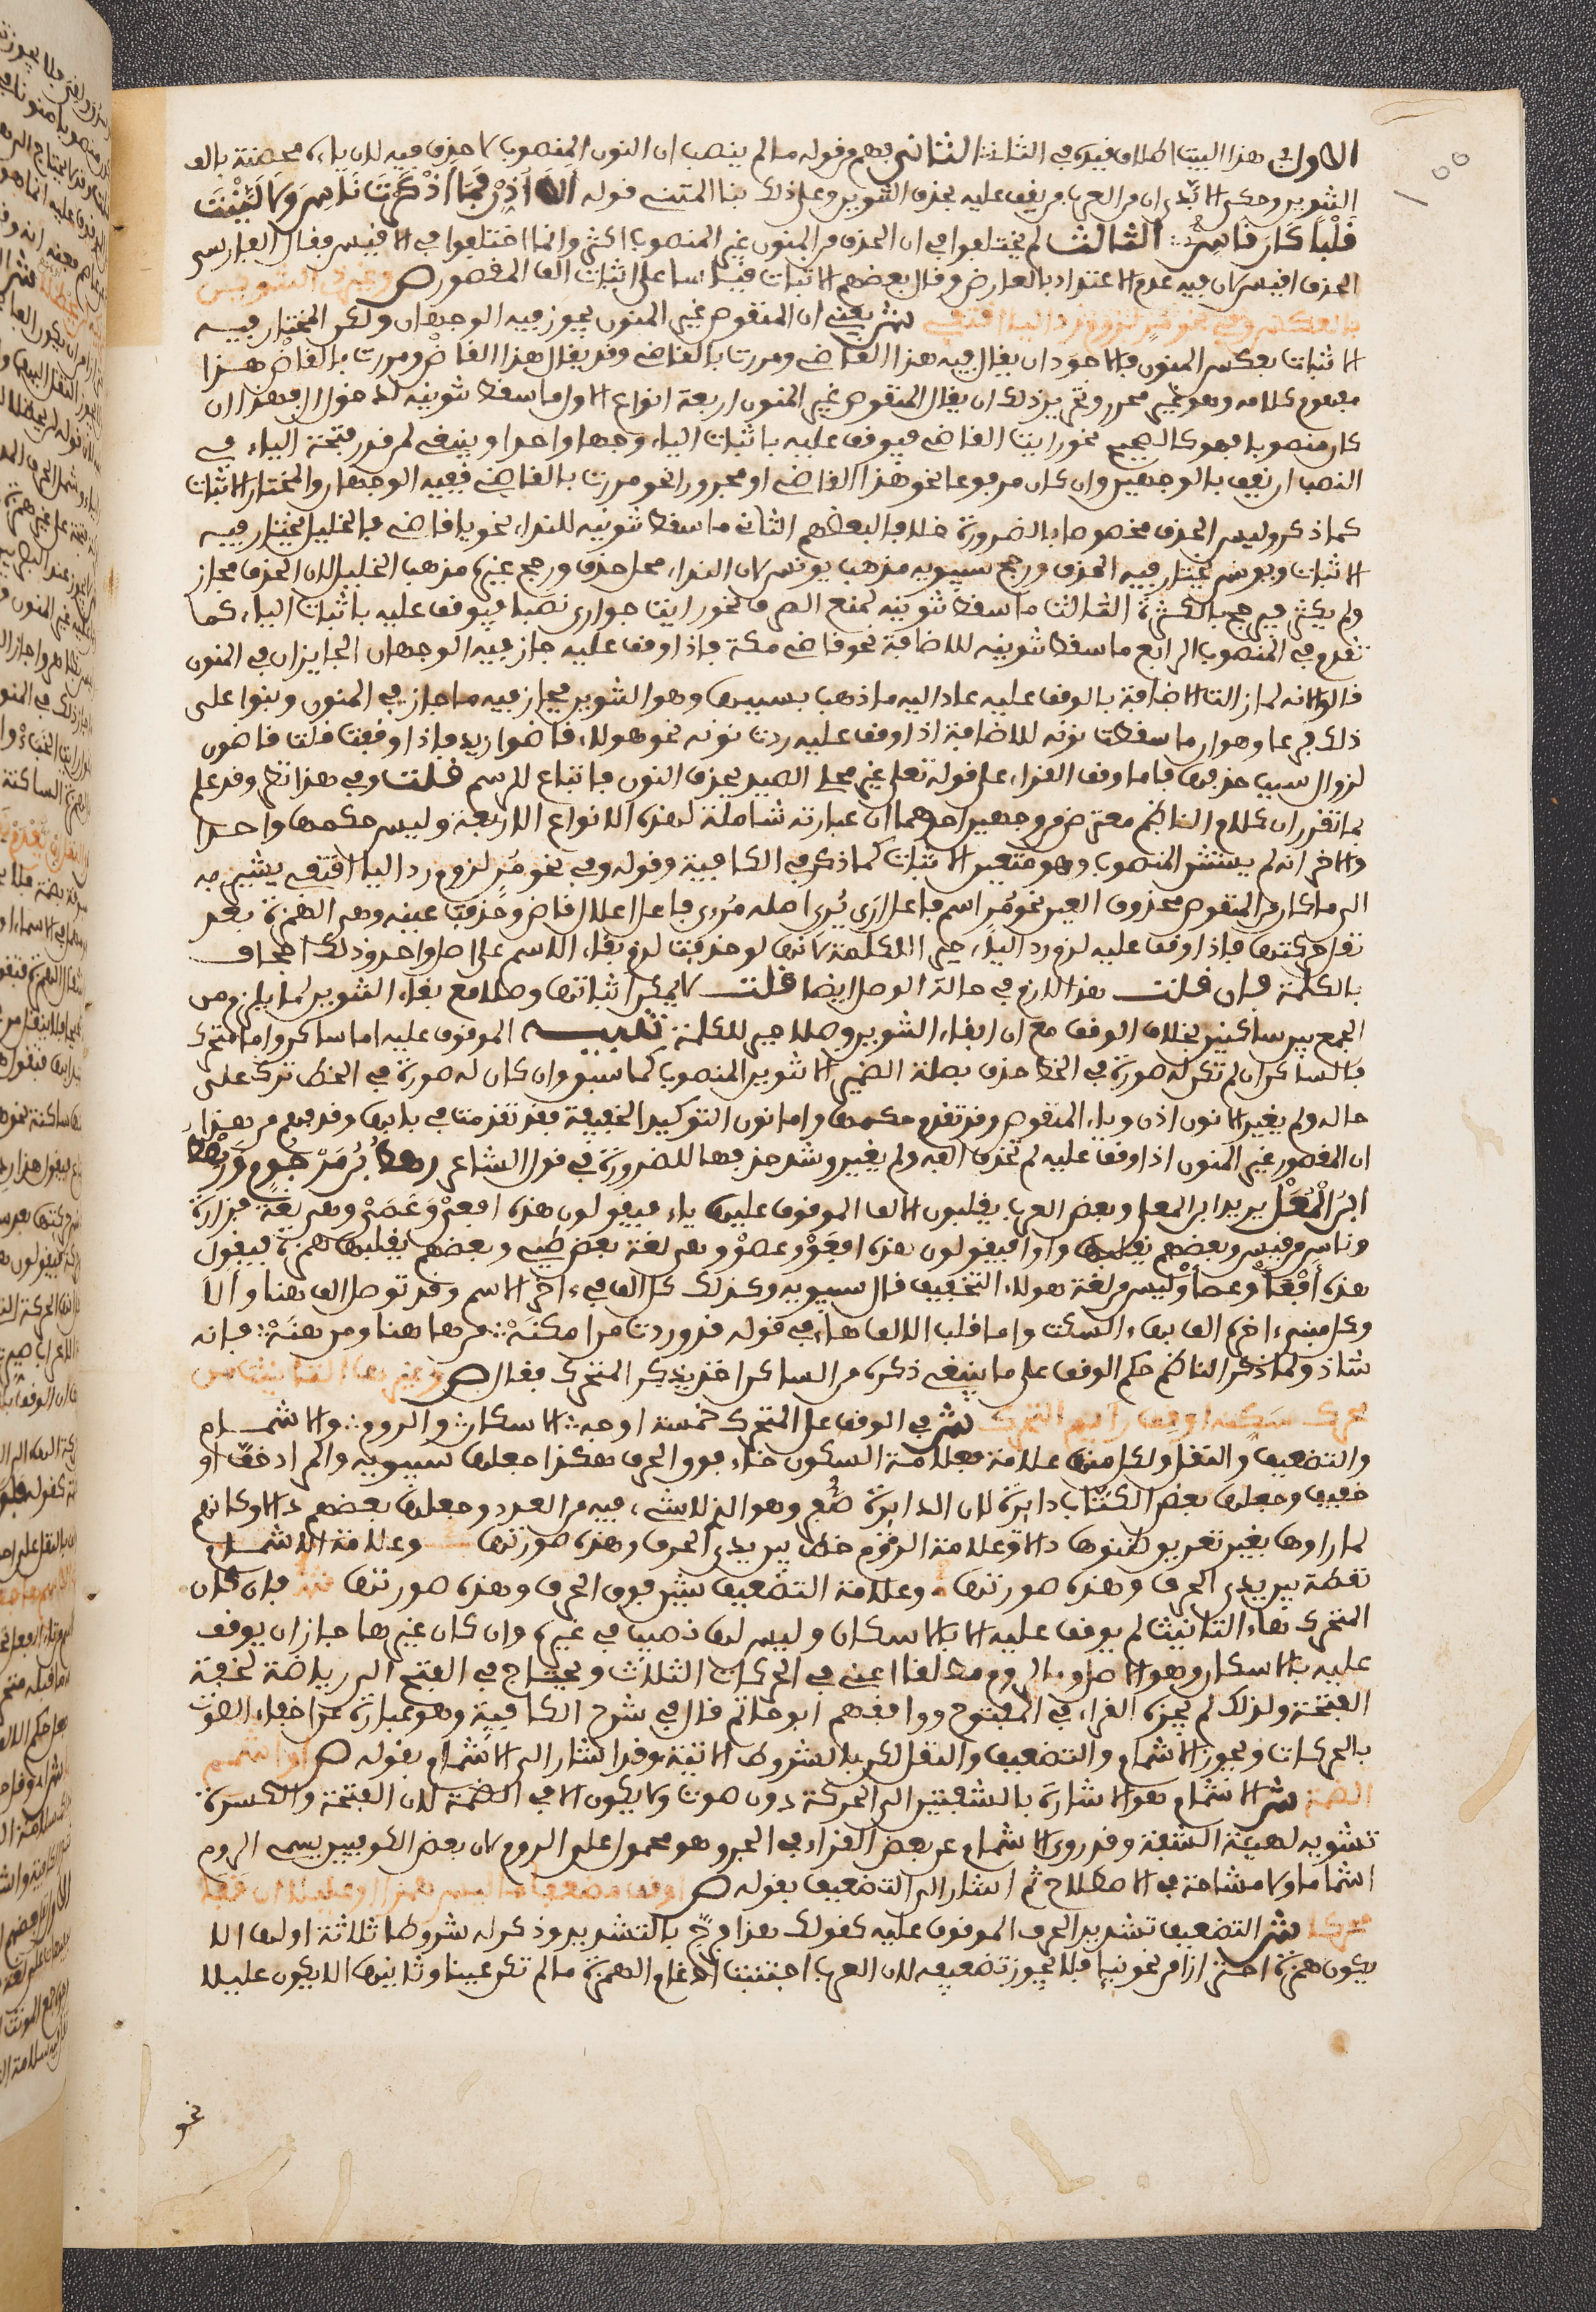 الاول في هذا البيت اطلاق قيده في الثلاثة الثاني فهم من قوله ما لم ينصب ان المنون المنصوب لا حذف فيه لان ياءه محصنة بالف
التنوين وحكى الابدي ان من العرب من يقف عليه بحذف التنوين وعلى ذلك بنا المتنبي قوله الا اذن فما اذكرت ناسي ولا لينت
قلبا كان قاسي الثالث لم يختلفوا في ان الحذف في المنون غير المنصوب اكثر وانما اختلفوا في الاقيس فقال الفارسي
الحذف اقيس لان فيه عدم الاعتداد بالعارض وقال بعضهم الاثبات قياسا على اثبات الف المقصور ص وغير ذي التنوين
بالعكس وفي نحو مر لزوم رد اليا اقتفي ش يعني ان المنقوص غير المنون يجوز فيه الوجهان ولكن المختار فيه
الاثبات بعكس المنون فالاجود ان يقال فيه هذا القاضي ومررت بالقاضي وقد يقال هذا القاض ومررت بالقاض هذا
مفهوم كلامه وهو غير محرر وتحرير ذلك ان يقال المنقوص غير المنون اربعة انواع الاول ما سقط تنوينه لدخول ال فهذا ان
كان منصوبا فهو كالصحيح نحو رايت القاضي فيوقف عليه باثبات الياء وجها واحدا وينبغي لمن قدر فتحة الياء في
النصب ان يقف بالوجهين وان كان مرفوعا نحو هذا القاضي او مجرورا نحو مررت بالقاضي ففيه الوجهان والمختار الاثبات
كما ذكر وليس الحذف مخصوصا بالضرورة خلافا لبعضهم الثاني ما سقط تنوينه للنداء نحو يا قاضي فالخليل يختار فيه
الاثبات ويونس يختار فيه الحذف ورجح سيبويه مذهب يونس لان النداء محل حذف ورجح غيره مذهب الخليل لان الحذف مجاز
ولم يكثر فيرجح بالكثرة الثالث ما سقط تنوينه لمنع الصرف نحو رايت جواري نصبا فيوقف عليه باثبات الياء كما
تقدم في المنصوب الرابع ما سقط تنوينه للاضافة نحو قاضي مكة فاذا وقف عليه جاز فيه الوجهان الجايزان في المنون
قالوا لانه لما زالت الاضافة بالوقف عليه عاد اليه ما ذهب بسببها وهو التنوين فجاز فيه ما جاز في المنون وبنوا على
ذلك فرعا وهو ان ما سقطت نونه للاضافة اذا وقف عليه ردت نونه نحو هولاء قاضوا زيد فاذا وقفت قلت قاضون
لزوال سبب حذفها فاما وقف القراء على قوله تعلى غير محلي الصيد بحذف النون فاتباع للرسم قلت وفي هذا نظر وقد علم
بما تقرر ان كلام الناظم معترض من وجهين احدهما ان عبارته شاملة لهذه الانواع الاربعة وليس حكمها واحدا
والاخر انه لم يستثن المنصوب وهو متعين الاثبات كما ذكر في الكافية وقوله وفي نحو مر لزوم رد اليا اقتفي يشير به
الى ما كان من المنقوص محذوف العين نحو مر اسم فاعل ارى يرى اصله مرءي فاعل اعلال قاض وحذفت عينه وهي الهمزة بعد
نقل حركتها فاذا وقف عليه لزم رد الياء جبرا للكلمة لانها لو حذفت لزم بقاء الاسم على اصل واحد وذلك اجحاف
بالكلمة فان قلت هذا لازم في حالة الوصل ايضا قلت لا يمكن اثباتها وصلا مع بقاء التنوين لما يلزم من
الجمع بين ساكنين بخلاف الوقف مع ان ابقاء التنوين وصلا جبر للكلمة تنبيه الموقوف عليه اما ساكن واما متحرك
فالساكن ان لم تكن له صورة في الخط حذف بصلة الضمير الا تنوين المنصوب كما سبق وان كان له صورة في الخط ترك على
حاله ولم يغير الا نون اذن وياء المنقوص وقد تقدم حكمهما واما نون التوكيد الخفيفة فقد تقدمت في بابها وقد فهم من هذا
ان المقصور غير المنون اذا وقف عليه لم تحذف الفه ولم يغير وشذ حذفها للضرورة في قول الشاعر رهط بن مرجوم ورهط
ابن المعل يريد ابن المعلى وبعض العرب يقلبون الالف الموقوف عليها ياء فيقولون هذه افعي وعصي وهي لغة فزارة
وناس من قيس وبعضهم يقلبها واوا فيقولون هذه افعو وعصو وهي لغة بعض طيي وبعضهم يقلبها همزة فيقول
هذه افعأ وعصأ وليس من لغة هولاء التخفيف قال سيبويه وكذلك كل الف في ءاخر الاسم وقد توصل الف هنا والا
وكل مبني ءاخره الف بهاء السكت واما قلب الالف هاء في قوله قد وردت من امكنه من هاهنا ومن هنه فانه
شاذ ولما ذكر الناظم حكم الوقف على ما ينبغي ذكره من الساكن اخذ يذكر المتحرك فقال ص وغير ها التانيث من
محرك سكنه او قف رايم التحرك ش في الوقف على المتحرك خمسة اوجه الاسكان والروم والاشمام
والتضعيف والنقل ولكل منها علامة فعلامة السكون خاء فوق الحرف هكذا جعلها سيبويه والمراد خف او
خفيف وجعلها بعض الكتاب دايرة لان الدايرة صفر وهو الذي لا شيء فيه من العدد وجعلها بعضهم دالا وكانهم
لما راوها بغير تعريق ظنوها دالا وعلامة الروم خط بين يدي الحرف وهذه صورتها وعلامة الاشمام
نقطة بين يدي الحرف وهذه صورتها وعلامة التضعيف شين فوق الحرف وهذه صورتها فان كان
المتحرك هاء التانيث لم يوقف عليه الا بالاسكان وليس لها نصيب في غيره وان كان غيرها جاز ان يوقف
عليه بالاسكان وهو الاصل وبالروم مطلقا اعني في الحركات الثلاث ويحتاج في الفتح الى رياضة لخفة
الفتحة ولذلك لم يجزه الفراء في المفتوح ووافقهم ابو حاتم قال في شرح الكافية وهو عبارة عن اخفاء الصوت
بالحركات ويجوز الاشمام والتضعيف والنقل لكن بالشروط الاتية وقد اشار الى الاشمام بقوله ص او اشمم
الضمة ش الاشمام هو الاشارة بالشفتين الى الحركة دون صوت ولا يكون الا في الضمة لان الفتحة والكسرة
تشويه لهيئة الشفة وقد روي الاشمام عن بعض القراء في الجر وهو محمول على الروم لان بعض الكوفيين يسمى الروم
اشماما ولا مشاحة في الاصطلاح ثم اشار الى التضعيف بقوله ص او قف مضعفا ما ليس همزا او عليلا ان قفا
محركا ش التضعيف تشديد الحرف الموقوف عليه كقولك هذا فرج بالتشديد وذكر له شروطا ثلاثة اولها الا
يكون همزة احترازا من نحو نبإ فلا يجوز تضعيفه لان العرب اجتنبت ادغام الهمزة ما لم تكن عينا وثانيها الا يكون عليلا
نحو